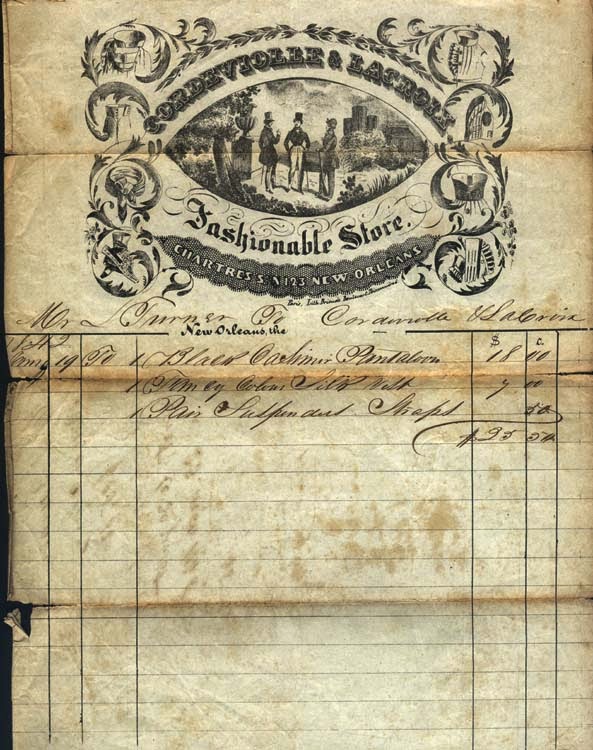 CORDEVIOLLE & LACROIX
Fashionable Store.
CHARTRES S. N 123 NEW ORLEANS
Mr Turner To Cordeviolle & LaCroix
New Orleans, the
$ c.
1842
19 To 1 Black Cashimir Pantaloon 18 00
1 Fancy Colour Silk Vest 7 00
1 Pair Suspendent Straps 50
$ 25 50